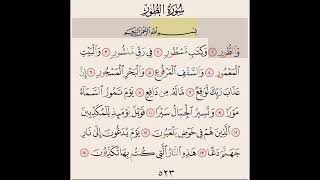 سُورَةُ الطُّورِ
بِسْمِ اللَّهِ الرَّحْمَٰنِ الرَّحِيمِ
وَالطُّورِ ۝١ وَكِتَابٍ مَّسْطُورٍ ۝٢ فِي رَقٍّ مَّنشُورٍ ۝٣ وَالْبَيْتِ
الْمَعْمُورِ ۝٤ وَالسَّقْفِ الْمَرْفُوعِ ۝٥ وَالْبَحْرِ الْمَسْجُورِ ۝٦ إِنَّ
عَذَابَ رَبِّكَ لَوَاقِعٌ ۝٧ مَّا لَهُ مِن دَافِعٍ ۝٨ يَوْمَ تَمُورُ السَّمَاءُ
مَوْرًا ۝٩ وَتَسِيرُ الْجِبَالُ سَيْرًا ۝١٠ فَوَيْلٌ يَوْمَئِذٍ لِّلْمُكَذِّبِينَ
۝١١ الَّذِينَ هُمْ فِي خَوْضٍ يَلْعَبُونَ ۝١٢ يَوْمَ يُدَعُّونَ إِلَىٰ نَارِ
جَهَنَّمَ دَعًّا ۝١٣ هَٰذِهِ النَّارُ الَّتِي كُنتُم بِهَا تُكَذِّبُونَ ۝١٤
٥٢٣